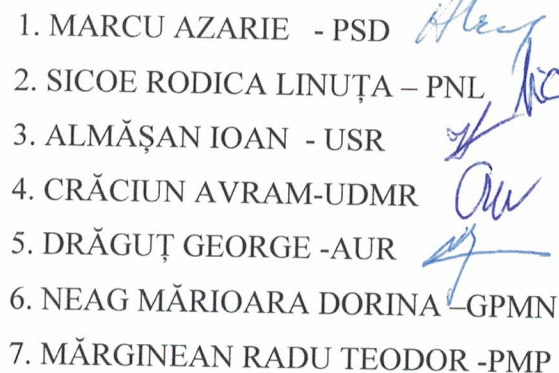 1. MARCU AZARIE - PSD
2. SICOE RODICA LINUȚA – PNL
3. ALMĂȘAN IOAN - USR
4. CRĂCIUN AVRAM-UDMR
5. DRĂGUȚ GEORGE -AUR
6. NEAG MĂRIOARA DORINA –GPMN
7. MĂRGINEAN RADU TEODOR -PMP